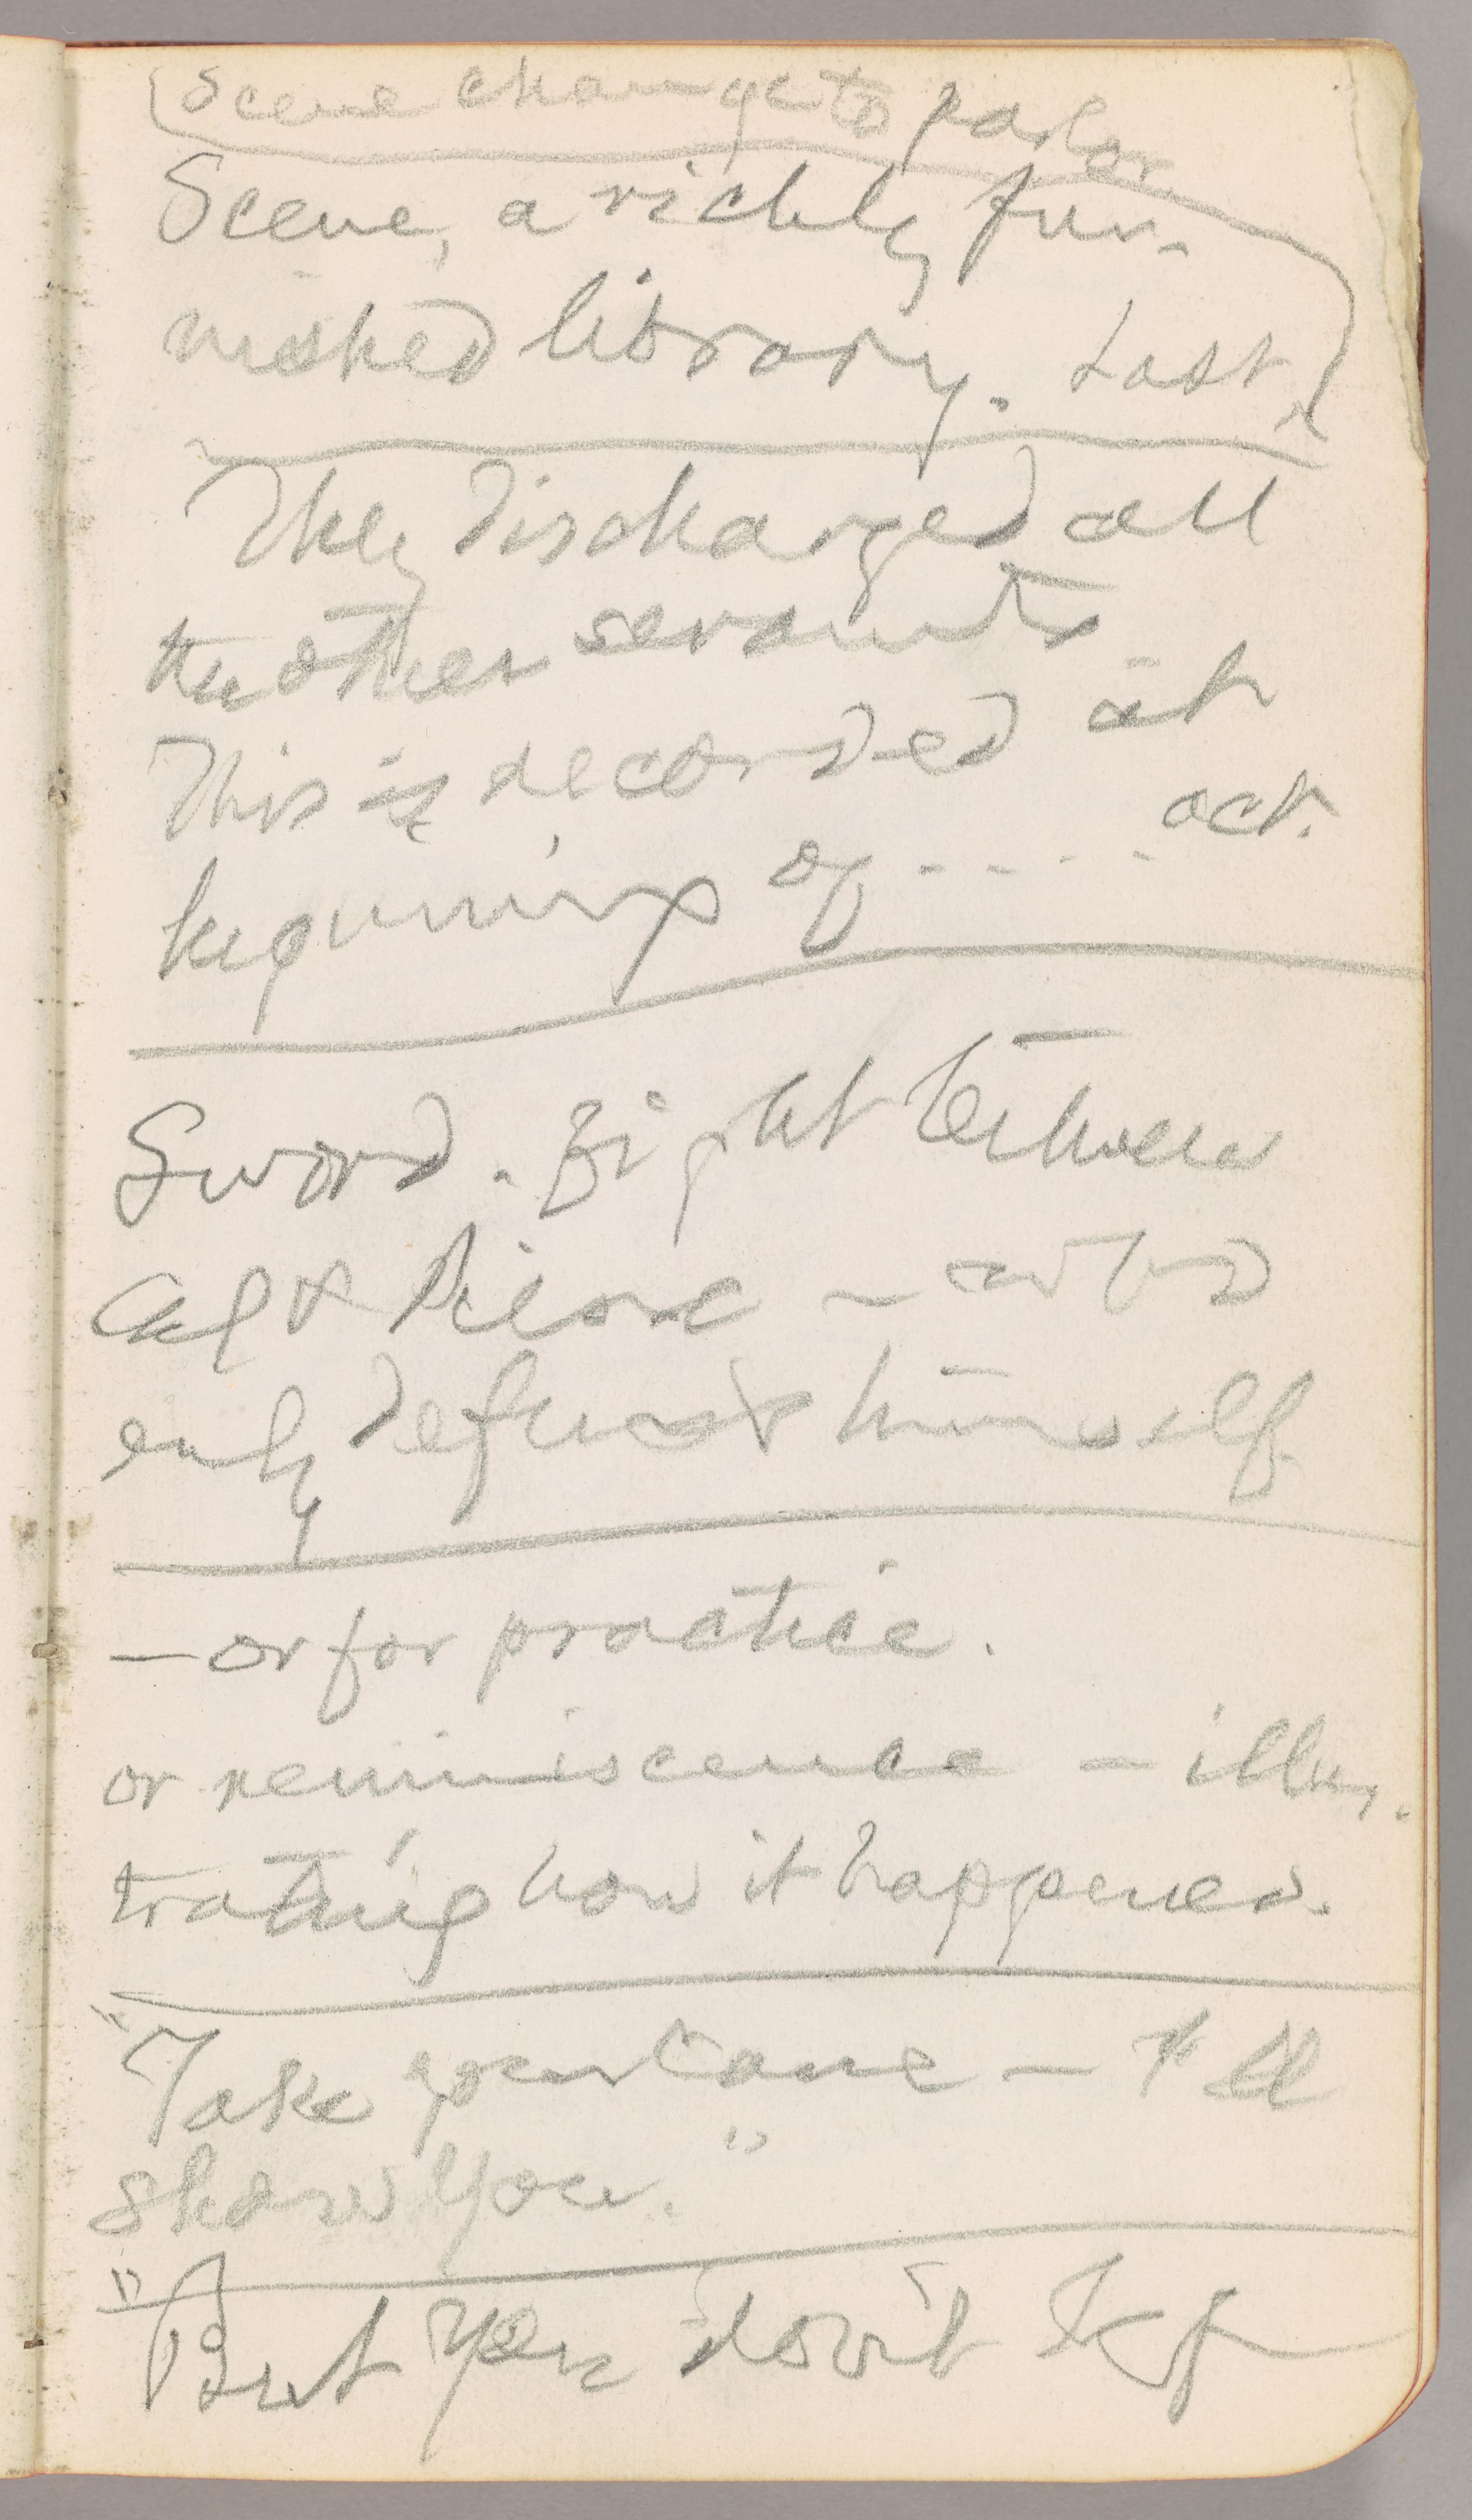 Scene change to parlor
Scene, a richly fur-
nished library. Last
They discharged all
the other servants.
This is recorded at
beginning of - - - - act.
Sword-fight between
& Pierre —
only defends himself.
— or for practice.
or reminiscence — illus-
trating how it happened.
"Take your cane — I'll
show you."
"But you don't